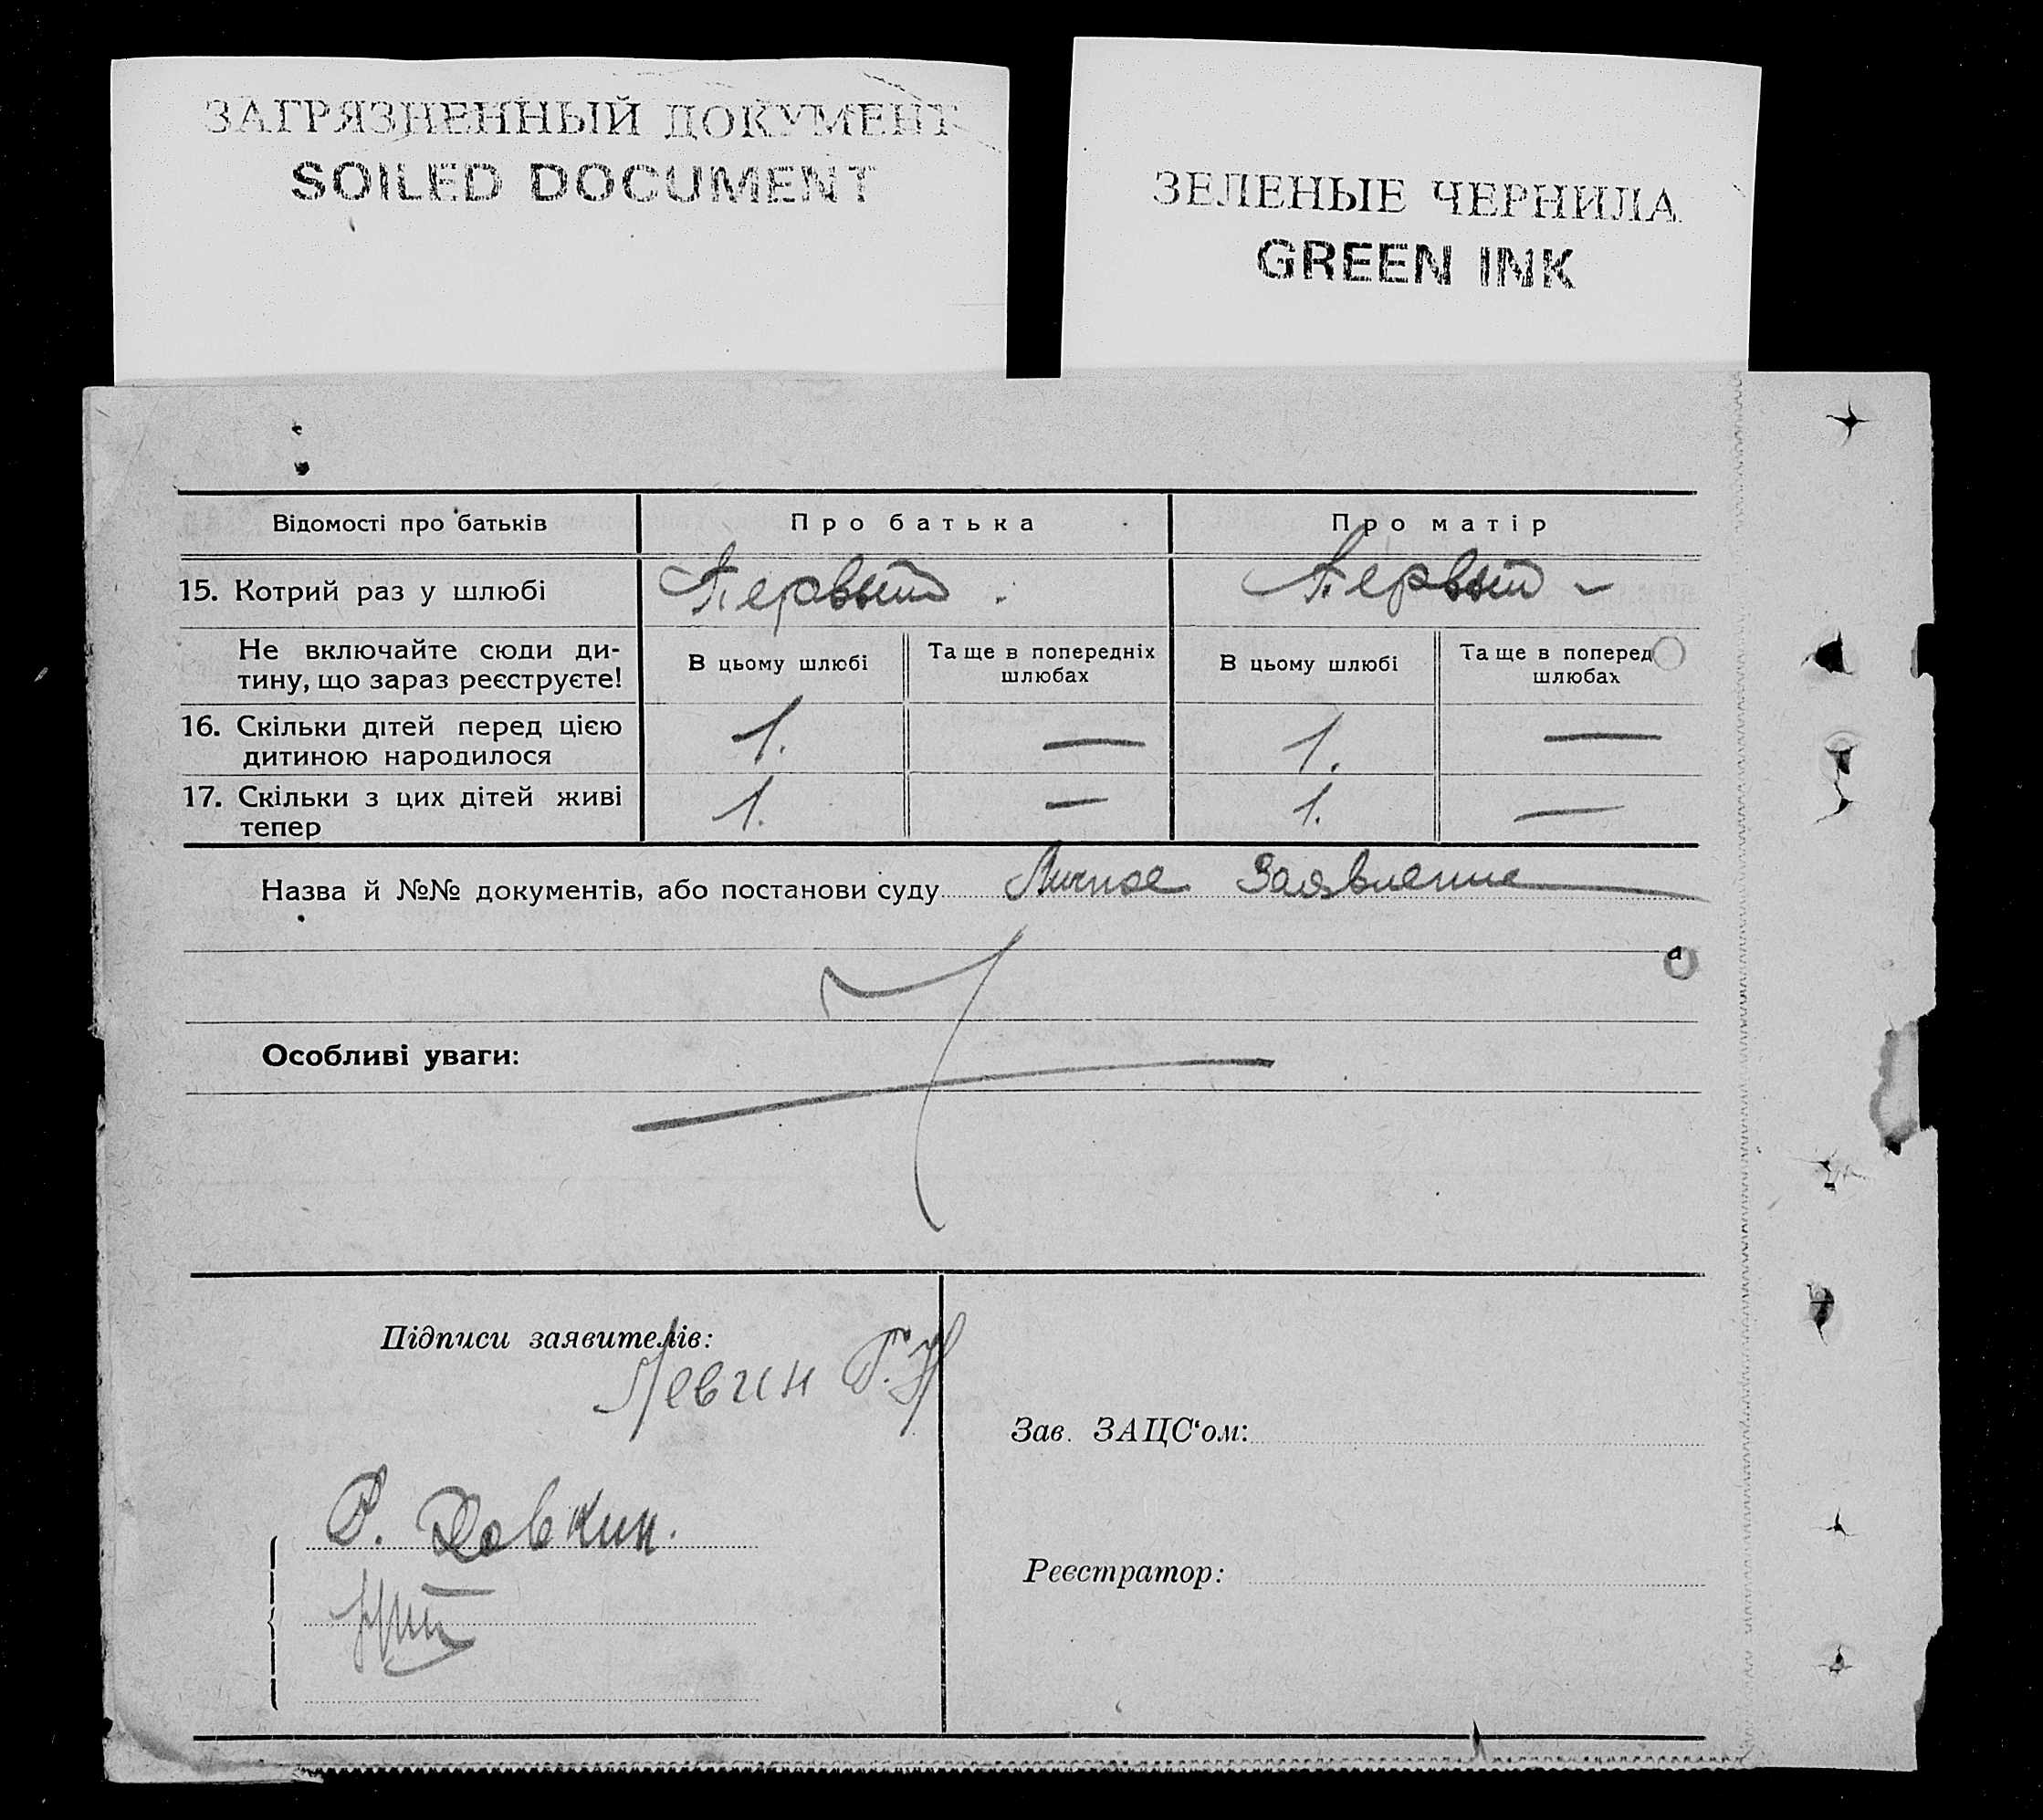 ЗАГРЯЗНЕННЫЙ ДОКУМЕНТ
SOILED DOCUMENT
ЗЕЛЕНЫЕ ЧЕРНИЛА
GREEN INK
Відомості про батьків Про батька Про матір
15. Котрий раз у шлюбі Первый. Первый -
Не включайте сюди ди-
тину, що зараз реєструєте!
В цьому шлюбі
Та ще в попередніх
шлюбах
В цьому шлюбі
Та ще в поперед
шлюбах
16. Скільки дітей перед цією
дитиною народилося
1. — 1. —
17. Скільки з цих дітей живі
тепер
1. — 1. —
Назва й №№ документів, або постанови суду Личное Заявление
Особливі уваги:
Підписи заявителів:
Левин Г.
Р. Довкин.
Зав. ЗАЦС‘ом:
Реєстратор: